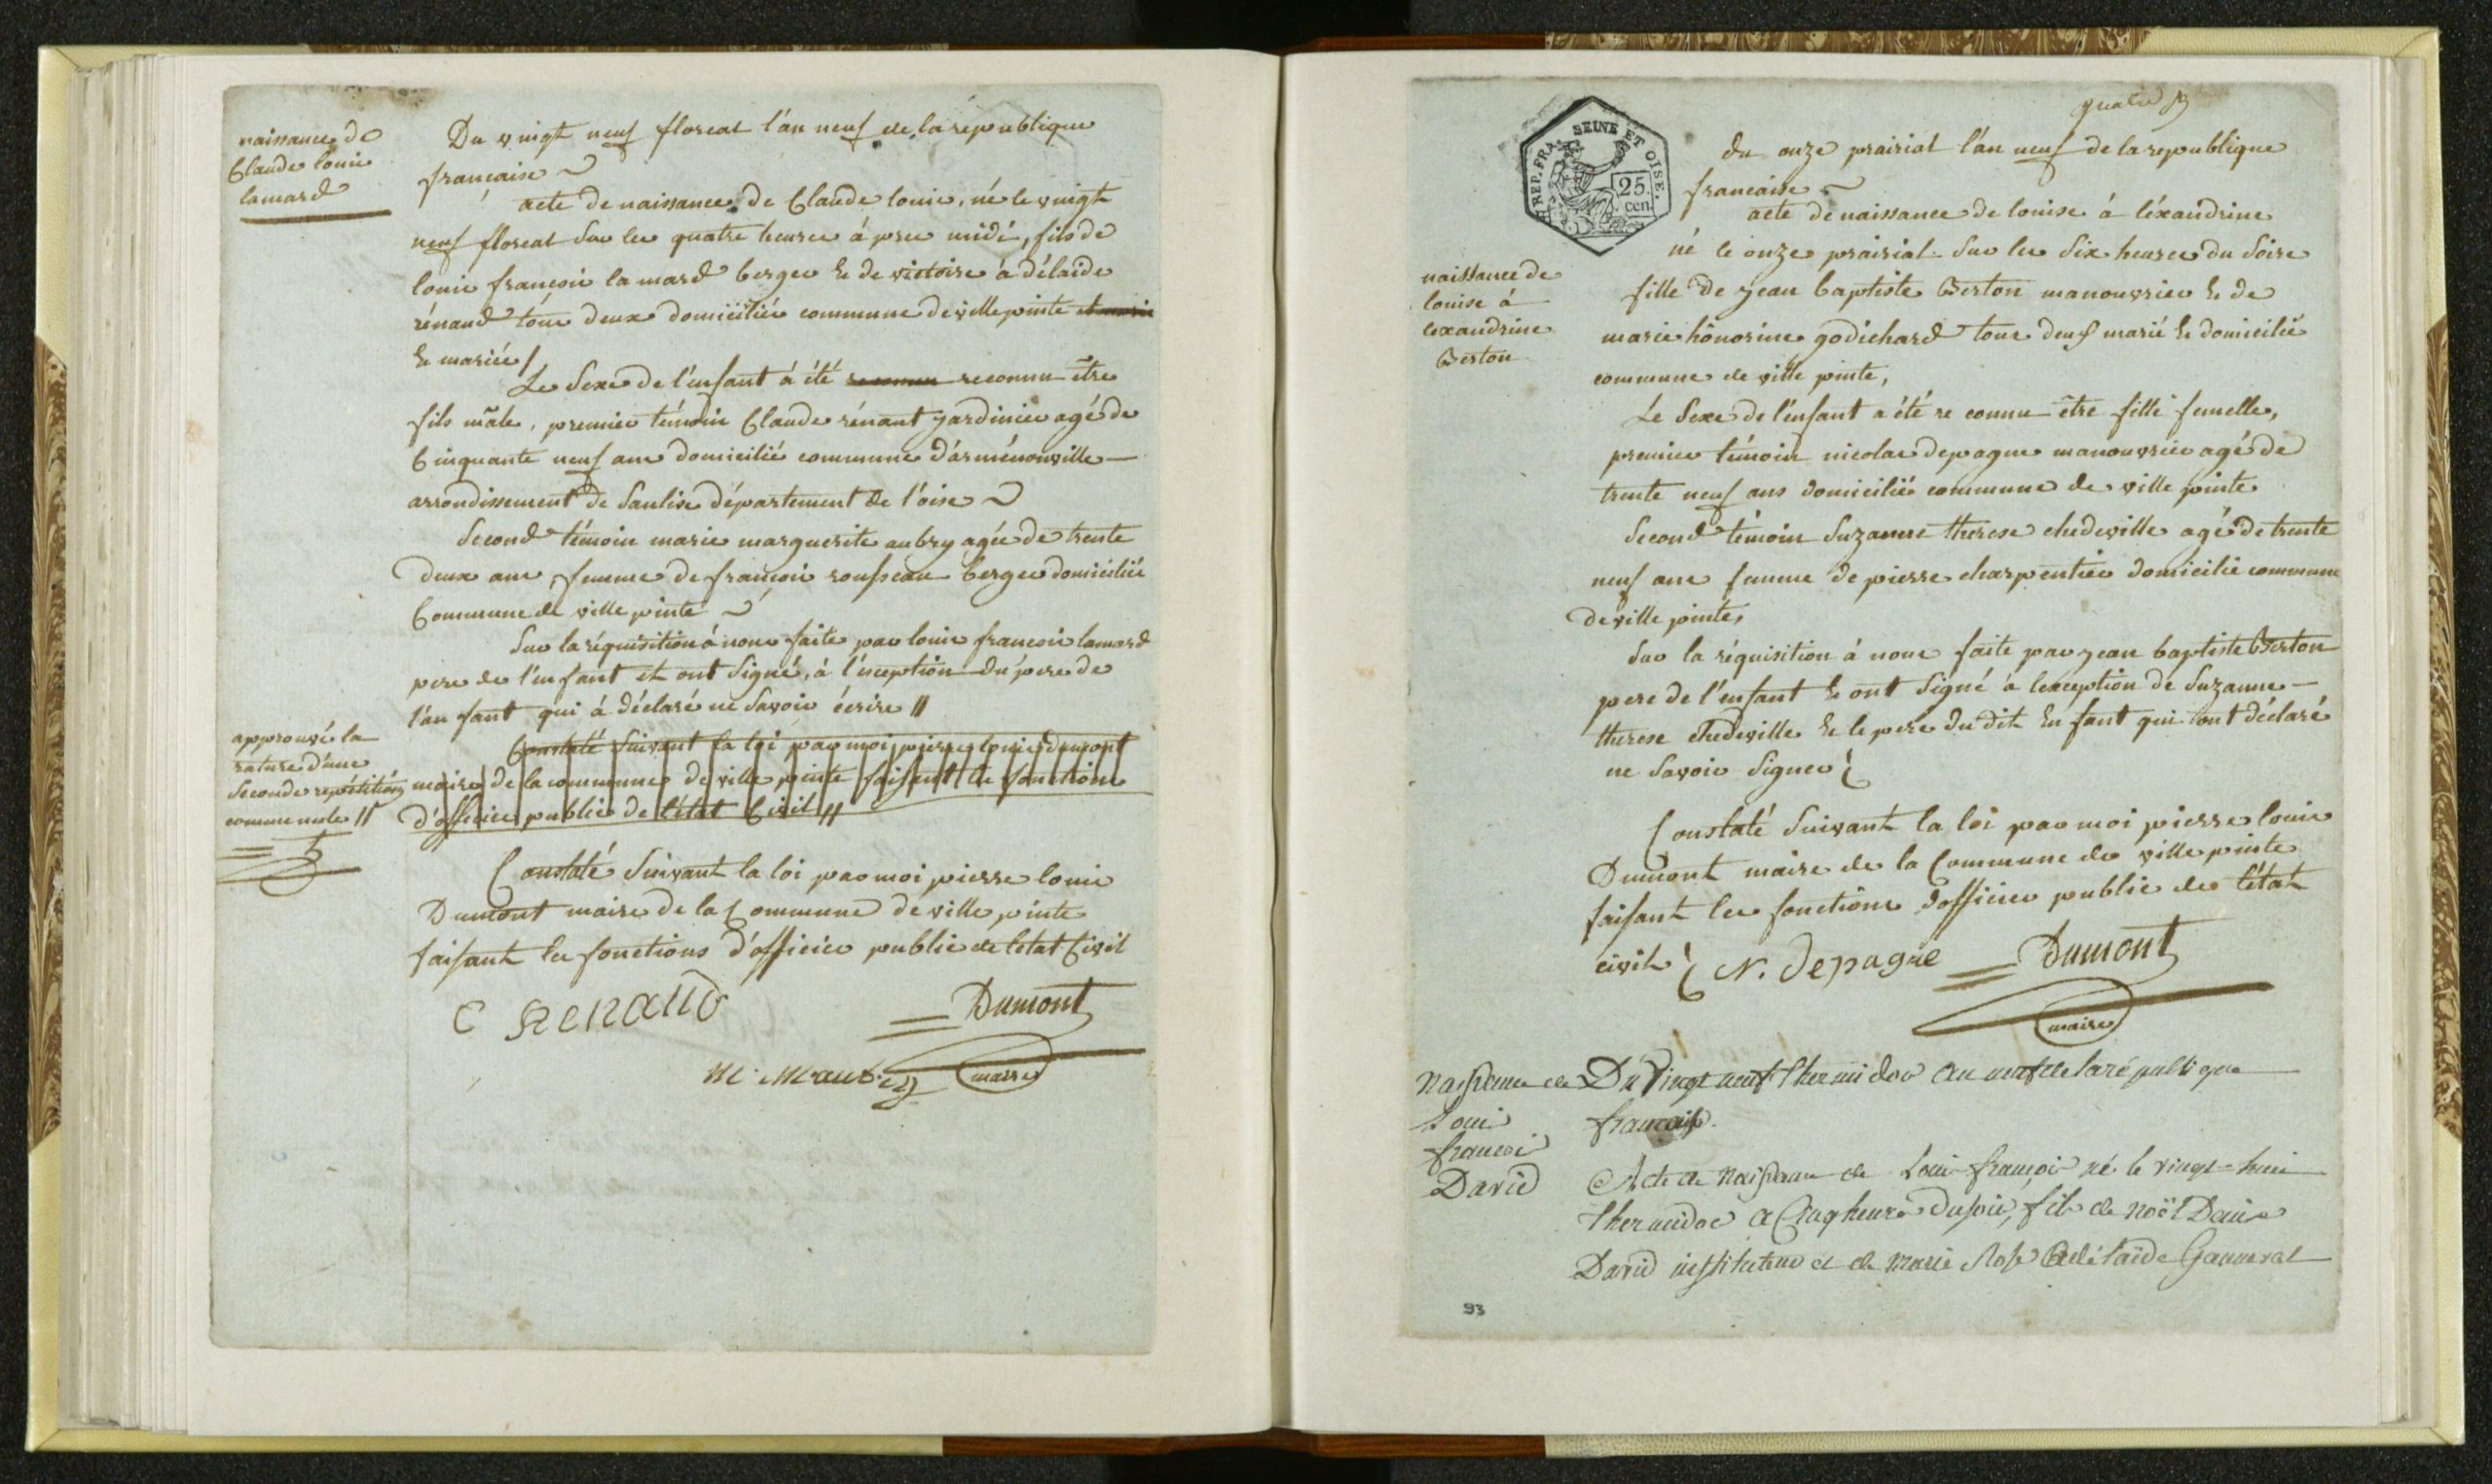 naissance de
Claude louis
lamard
Du vingt neuf floreal l'an neuf de la republique
française
acte de naissance de Claude louis, né le vingt
neuf floreal sur les quatre heures à pres midi, fils de
louis françois la mard berger & de victoire à délaide
rénaud tous deux domiciliés commune de villepinte et mariés
& mariés/
Le Sexe de l'enfant à été reconnu reconnu être
fils mâle, premier témoin Claude rénant jardinier agé de
Cinquante neuf ans domicilié commune d'arménonville
arrondissement de Sanlise département de l'oise
Second témoin marie marguerite aubry agée de trente
deux ans, femme de françois rousseau berger domiciliée
Commune de ville pinte
Sur la réquisition à nous faite par louis francois lamard
pere de l'enfant et ont Signé, à l'éxeption du pere de
l'an fant qui à déclaré ne Savoir écrire //
approuvé la
rature d'une
Seconde repétition
comme nule //
Constaté Suivant la loi par moi pierre louis dumont
maire de la commune de ville pinte faisant les fonctions
d'officier public de l'état Civil //
Constaté Suivant la loi par moi pierre louis
Dumont maire de la Commune de ville pinte
faisant les fonctions d'officier public de letat Civil
C Renaud
Dumont
maire
quatre
REP. FRA. SEINE ET OISE.
25.
cen.
du onze prairial l'an neuf de la republique
francaise
acte de naissance de louise à léxandrine
né le onze prairial Sur les Six heures du Soire
naissance de
louise à
lexandrine
Berton
fille de jean baptiste Berton manouvrier & de
marie hônorine godichard tous deuf marié & domicilié
commune de ville pinte,
Le Sexe de l'enfant a été re connu être fille femelle,
premier témoin nicolas depagne manouvrier agé de
trente neuf ans domicilié commune de ville pinte
Second témoin Suzanne therese chedeville agé de trente
neuf ans femme de pierre charpentier domicilié commune
de ville pinte,
Sur la réquisition à nous faite par jean baptiste Berton
pere de l'enfant & ont Signé à lexeption de Suzanne
therese chedeville & le pere du dit En fant qui tont déclaré
ne Savoir Signer
Constaté Suivant la loi par moi pierre louis
Dumont maire de la Commune de ville pinte
faisant les fonctions dofficier public de l'état
civil N. Depagne Dumont
maire
Naissance de
Loui
francoi
David
Du Vingt neuf thermidor an neuf de la républi que
francaise.
Acte de Naissance de Loui françoi né le vingt-huit
thermidor a Cinq heure du soir, fils de Noël Denis
David instituteur et de Marie Rose Adélaïde Ganneval
93